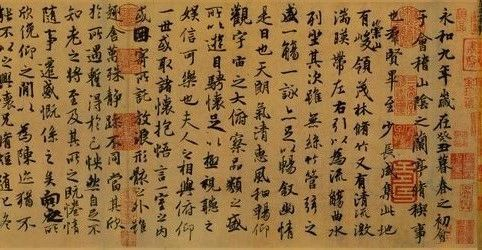 永和九年歲在癸丑暮春之初會
于會稽山陰之蘭亭脩禊事
也羣賢畢至少長咸集此地
有崇山峻領茂林脩竹又有清流激
湍暎帶左右引以為流觴曲水
列坐其次雖無絲竹管弦之
盛一觴一詠亦足以暢叙幽情
是日也天朗氣清惠風和暢仰
觀宇宙之大俯察品類之盛
所以遊目騁懷足以極視聽之
娛信可樂也夫人之相與俯仰
一世或取諸懷抱悟言一室之內
或因寄所託放浪形骸之外雖
趣舍萬殊靜躁不同當其欣
於所遇暫得於己怏然自足不
知老之將至及其所之既惓情
隨事遷感慨係之矣向之所
欣俛仰之間以為陳迹猶不
能不以之興懷況脩短隨化終